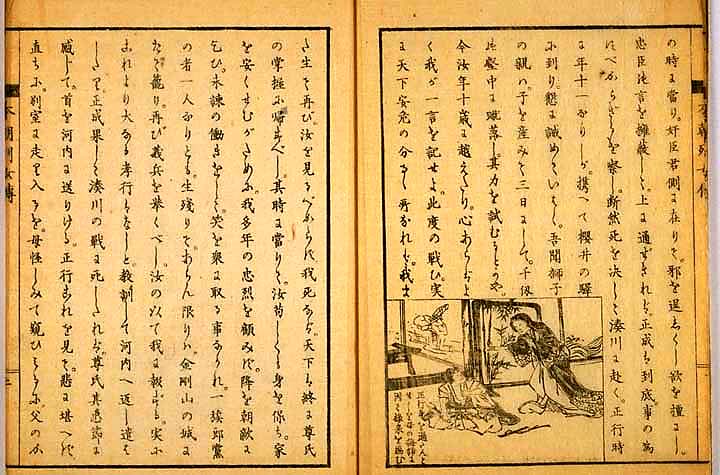 の時ニ當り。奸臣君側ニ在りて。邪を逞ふし欲を擅ニし。
忠臣諫言を擁蔽して。上ニ通ずされば。正成も到底事の為
すべからざるを察し。断然死を決して湊川ニ赴く。正行時
ニ年十一なりしが。携へて櫻井の驛
に到り。懇ニ誡めていはく。吾聞獅子
の親ハ子を産みて三日ニして。千仭
の壑中ニ蹴落し。其力を試むるとかや。
今汝年十歳ニ越えたり。心あらばよ
く我が一言を記せよ。此度の戦ひ実
ニ天下安危の分るゝ所なれば。我ハ
正行死を遂んと
せしを母の訓誡に
本朝列女傳
た生て再び。汝を見るべからず。我死なば。天下ハ終ニ尊氏
の掌握に帰すべし。其時ニ當りて。汝苟しくも身を保ち。家
を安くせむがために。我多年の忠烈を顧みず。降を朝敵ニ
乞ひ。未練の働きをして。笑を衆ニ取る事なかれ。一族郎黨
の者一人なりとも。生残りてあらん限りハ。金剛山の城ニ
たて籠り。再び義兵を挙ぐべし。汝の以て我ニ報ゆる。実に
これより大なる孝行ハなしと。教訓して河内へ返し遣は
したり。正成果して湊川の戦ニ死したれば。尊氏其忠節に
感じて。首を河内ニ送りける。正行これを見て。悲ニ堪へず。
直ちに。別室ニ走り入るを。母怪しみて窺ひしに。父のか
本朝列女傳